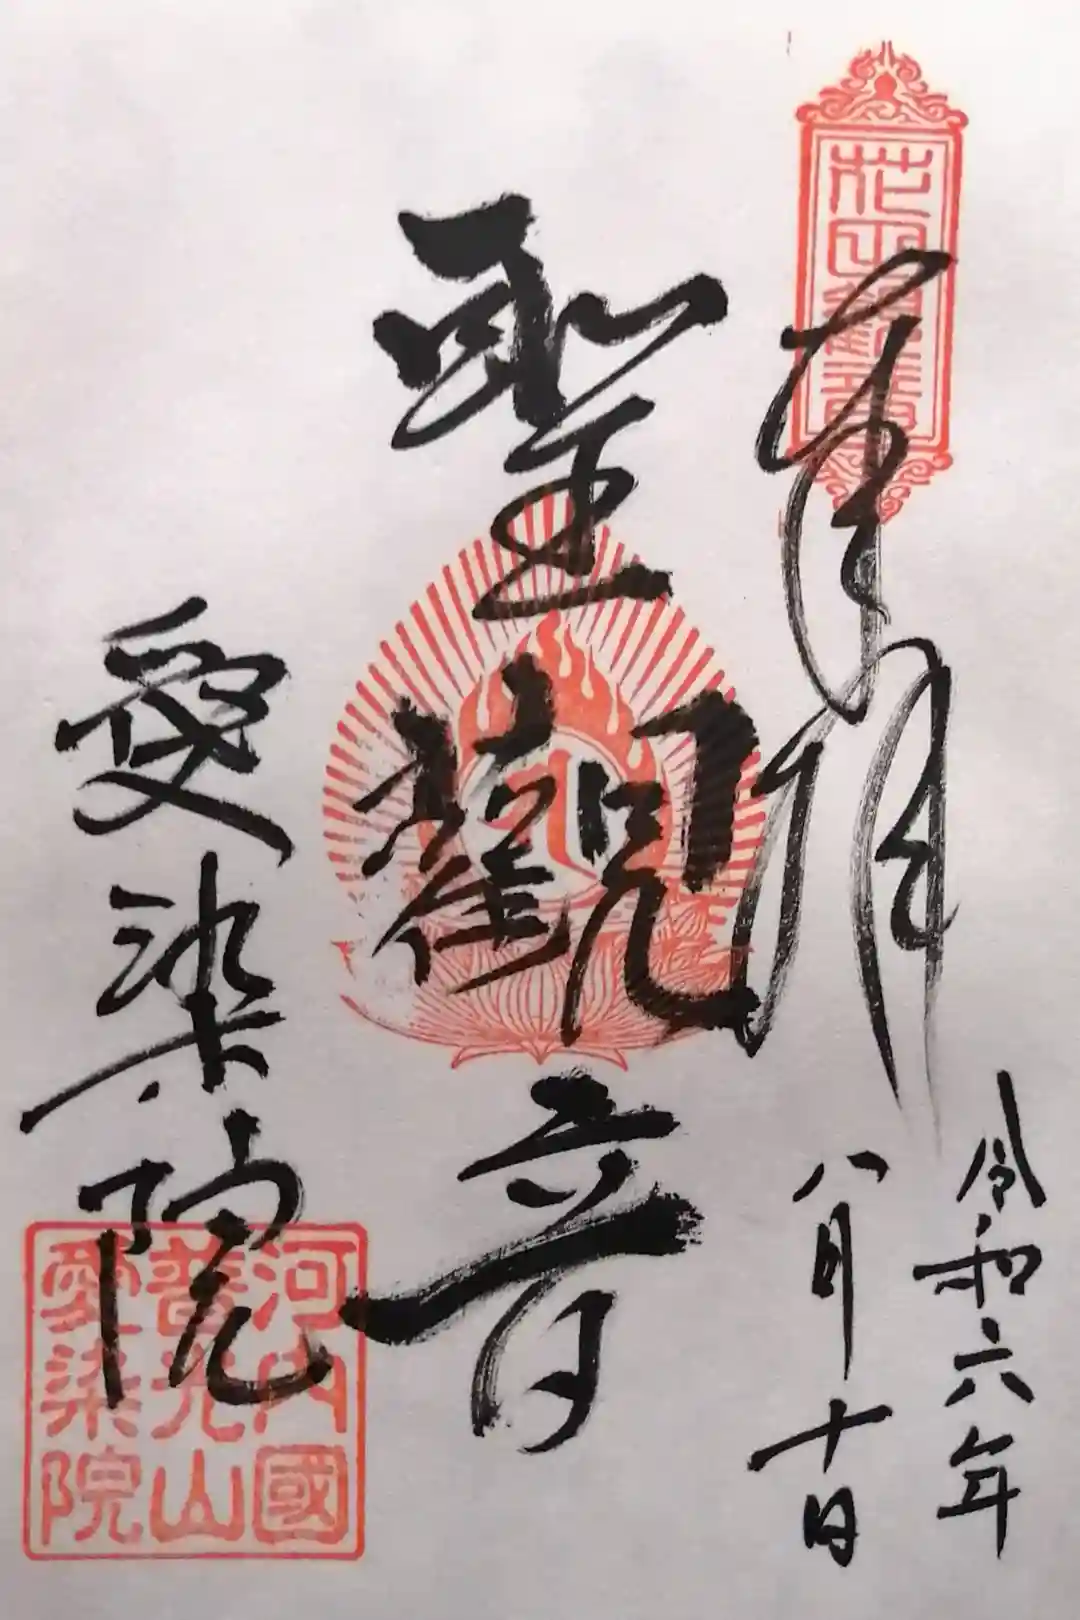 奉拝
令和六年
八月十日
聖観音
愛染院
花山観音
河内國
普光山
愛染院